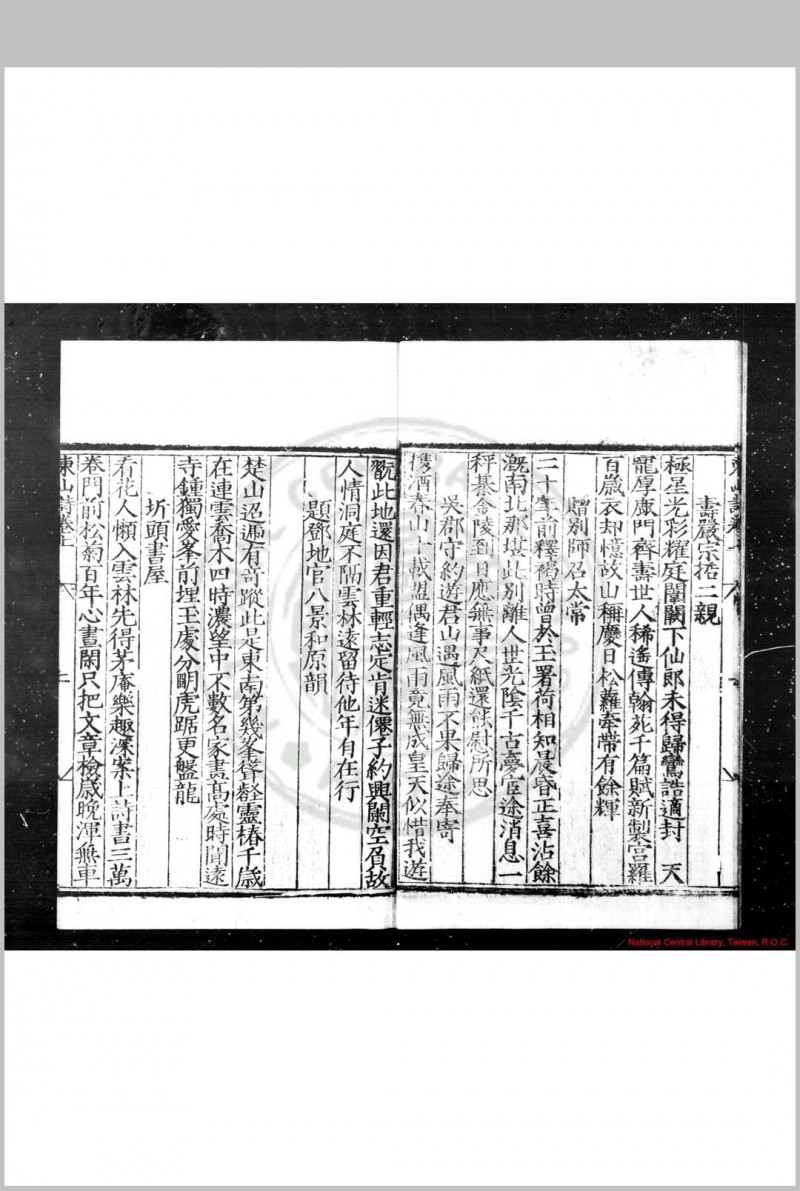 壽嚴宗哲二親
極星光彩耀庭闈闕下仙郎未得歸鸞誥適封　天
寵厚廊門齊壽世人稀遙傳翰苑千篇賦新製宮羅
百歲衣却憶故山稱慶日松蘿牽帶有餘輝
贈別師召太常
二十年前釋褐時曾於玉署荷相知晨昏正喜沾餘
漑南北那堪此別離人世光陰千古夢宦途消息一
秤棊金陵到日應無事尺紙還能慰所思
吳郡守約遊君山遇風雨不果歸途奉寄
携酒春山十載盟偶逢風雨竟無成皇天似惜我遊
翫此地還因君重輕志定肯迷僊子約興闌空負故
人情洞庭不隔雲林遠留待他年自在行
題鄧地官八景和原韻
楚山迢遞有奇蹤此是東南第幾峯聳壑靈椿千歲
在連雲喬木四時濃望中不數名家畫高處時聞遠
寺鍾獨愛峯前埋玉處分明虎踞更盤龍
圻頭書屋
看花人懶入雲林先得茅庵樂趣深案上詩書三萬
卷門前松菊百年心晝閑只把文章檢歲晚渾無車
東山詩卷上